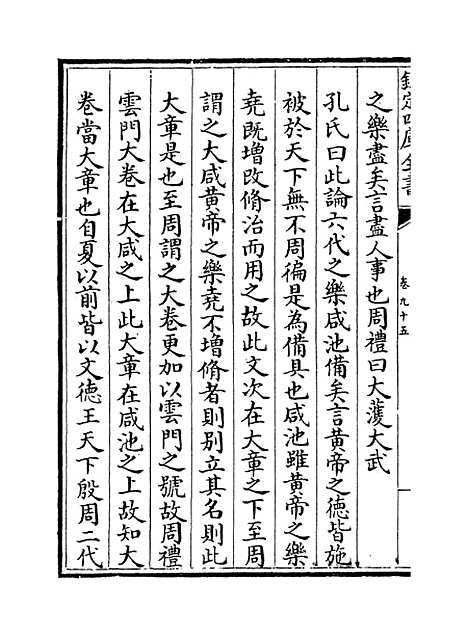 欽定四庫全書
卷九十五
之樂盡矣言盡人事也周禮曰大濩大武
孔氏曰此論六代之樂咸池備矣言黃帝之德皆施
被於天下無不周徧是為備具也咸池雖黃帝之樂
堯既增改脩治而用之故此文次在大章之下至周
謂之大咸黃帝之樂堯不增脩者則别立其名則此
大章是也至周謂之大卷更加以雲門之號故周禮
雲門大卷在大咸之上此大章在咸池之上故知大
卷當大章也自夏以前皆以文德王天下殷周二代